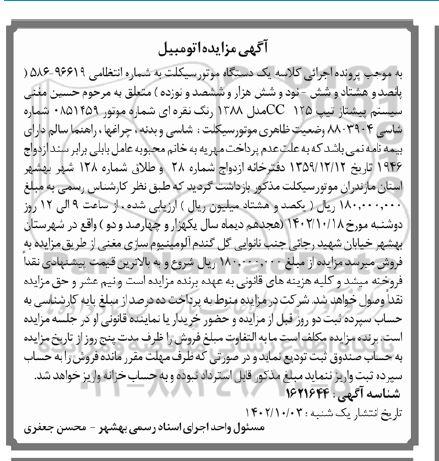 آگهی مزایده اتومبیل
به موجب پرونده اجرائی کلاسه یک دستگاه موتورسیکلت به شماره انتظامی ۹۶۶۱۹-۵۸۶ (
پانصد و هشتاد و شش - نود و شش هزار و ششصد و نوزده ) متعلق به مرحوم حسین مغنی
سیستم پیشتاز تیپ CC ۱۲۵ مدل ۱۳۸۸ رنگ نقره ای شماره موتور ۰۸۵۱۴۵۹ شماره
شاسی ۸۸۰۳۹۰۴ وضعیت ظاهری موتورسیکلت : شاسی و بدنه ، چراغها ، راهنما سالم دارای
بیمه نامه نمی باشد که به علت عدم پرداخت مهریه به خانم محبوبه عامل بابلی برابر سند ازدواج
۱۹۴۶ تاریخ ۱۳۵۹/۱۲/۱۲ دفترخانه ازدواج شماره ۲۸ و طلاق شماره ۱۲۸ شهر بهشهر
استان مازندران موتورسیکلت مذکور بازداشت گردید که طبق نظر کارشناس رسمی به مبلغ
۱۸۰,۰۰۰,۰۰۰ ریال ( یکصد و هشتاد میلیون ریال ) ارزیابی شده ، از ساعت ۹ الی ۱۲ روز
دوشنبه مورخ ۱۴۰۲/۱۰/۱۸ (هجدهم دیماه سال یکهزار و چهارصد و دو) واقع در شهرستان
بهشهر خیابان شهید رجائی جنب نانوایی گل گندم آلومینیوم سازی مغنی از طریق مزایده به
فروش میرسد مزایده از مبلغ ۱۸۰,۰۰۰,۰۰۰ ریال شروع و به بالاترین قیمت پیشنهادی نقداً
فروخته میشد و کلیه هزینه های قانونی به عهده برنده مزایده است و نیم عشر و حق مزایده
نقداً وصول خواهد شد. شرکت در مزایده منوط به پرداخت ده درصد از مبلغ پایه کارشناسی به
حساب سپرده ثبت دو روز قبل از مزایده و حضور خریدار یا نماینده قانونی او در جلسه مزایده
است. برنده مزایده مکلف است ما به التفاوت مبلغ فروش را ظرف مدت پنج روز از تاریخ مزایده
به حساب صندوق ثبت تودیع نماید و در صورتی که ظرف مهلت مقرر مانده فروش را به حساب
سپرده ثبت واریز ننماید مبلغ مذکور قابل استرداد نبوده و به حساب خزانه واریز خواهد شد.
شناسه آگهی : ۱۶۲۱۶۴۴
تاریخ انتشار یک شنبه : ۱۴۰۲/۱۰/۰۳
مسئولِ واحد اجرای اسناد رسمی بهشهر - محسن جعفری